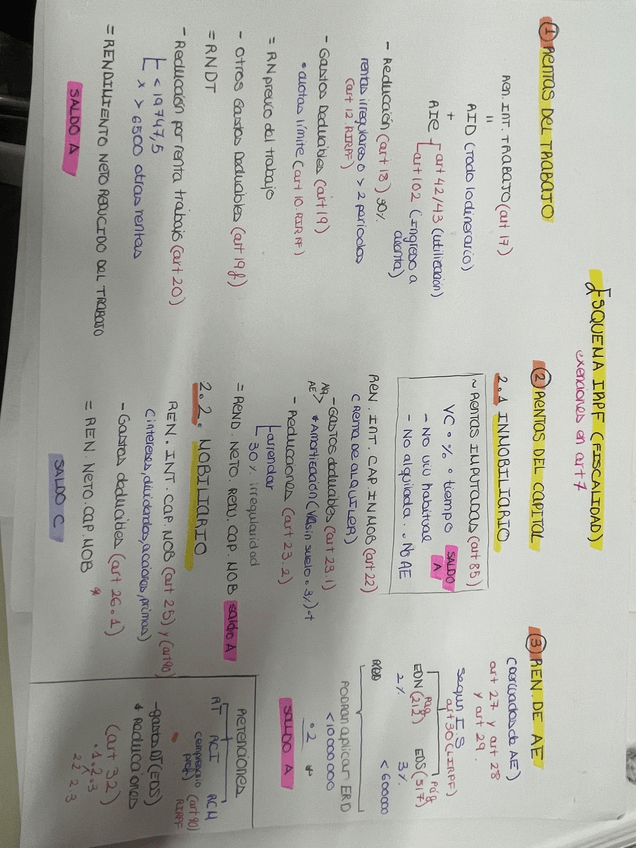 ESQUEMA IRPF (FISCALIDAD)
exenciones art 7
① RENTAS DEL TRABAJO
REN. INT. TRABAJO (art 17)
=
AID (Todo lo dinerario)
+
AIE
art 42/43 (utilización)
art 102 (ingreso a
cuenta)
- Reducción (art 18) 30%
rentas irregulares o > 2 periodos
(art 12. RIRPF)
- Gastos Deducibles (art 19)
• cuotas límite (art 10. RIRPF)
= RN previo del trabajo
- Otros Gastos Deducibles (art 19f)
= RNDT
- Reducción por renta trabajo (art 20)
< 19747,5
x > 6500 otras rentas
= RENDIMIENTO NETO REDUCIDO DEL TRABAJO
SALDO A
② RENTAS DEL CAPITAL
2.1 INMOBILIARIO
~ Rentas Imputadas (art 85)
VC · % · tiempo
SALDO A
- No viv habitual
- No alquilada. · No AE
REN. INT. CAP INMOB (art 22)
(REMA DE ALQUILER)
- Gastos deducibles (art 23.1)
AE> * Amortización (VA sin suelo · 3%) · t
- Reducciones (art 23.2)
arrendar
30% irregularidad
= REND. NETO. REDU. CAP. MOB
SALDO A
2.2. MOBILIARIO
REN. INT. CAP. MOB (art 25) y (art 90)
(intereses, dividendos, acciones, primas)
- Gastos deducibles (art 26.1)
= REN. NETO. CAP. MOB
SALDO C
③ REN. DE AE
(derivados de AE)
art 27 y art 28
y art 29.
Según IS
art 30 (LIRPF)
Pág
EDN (212)
2%
Pág
EDS (517)
3%
< 600000
RED
PODRÁN aplicar ERD
< 10000000
· 2
SALDO A
Retenciones
RT
RCI
RCM
(art 90)
RIRPF
- gastos DJ (EDS)
* Reducciones
(art 32)
· 1 · 2 · 3
2.2 2.3